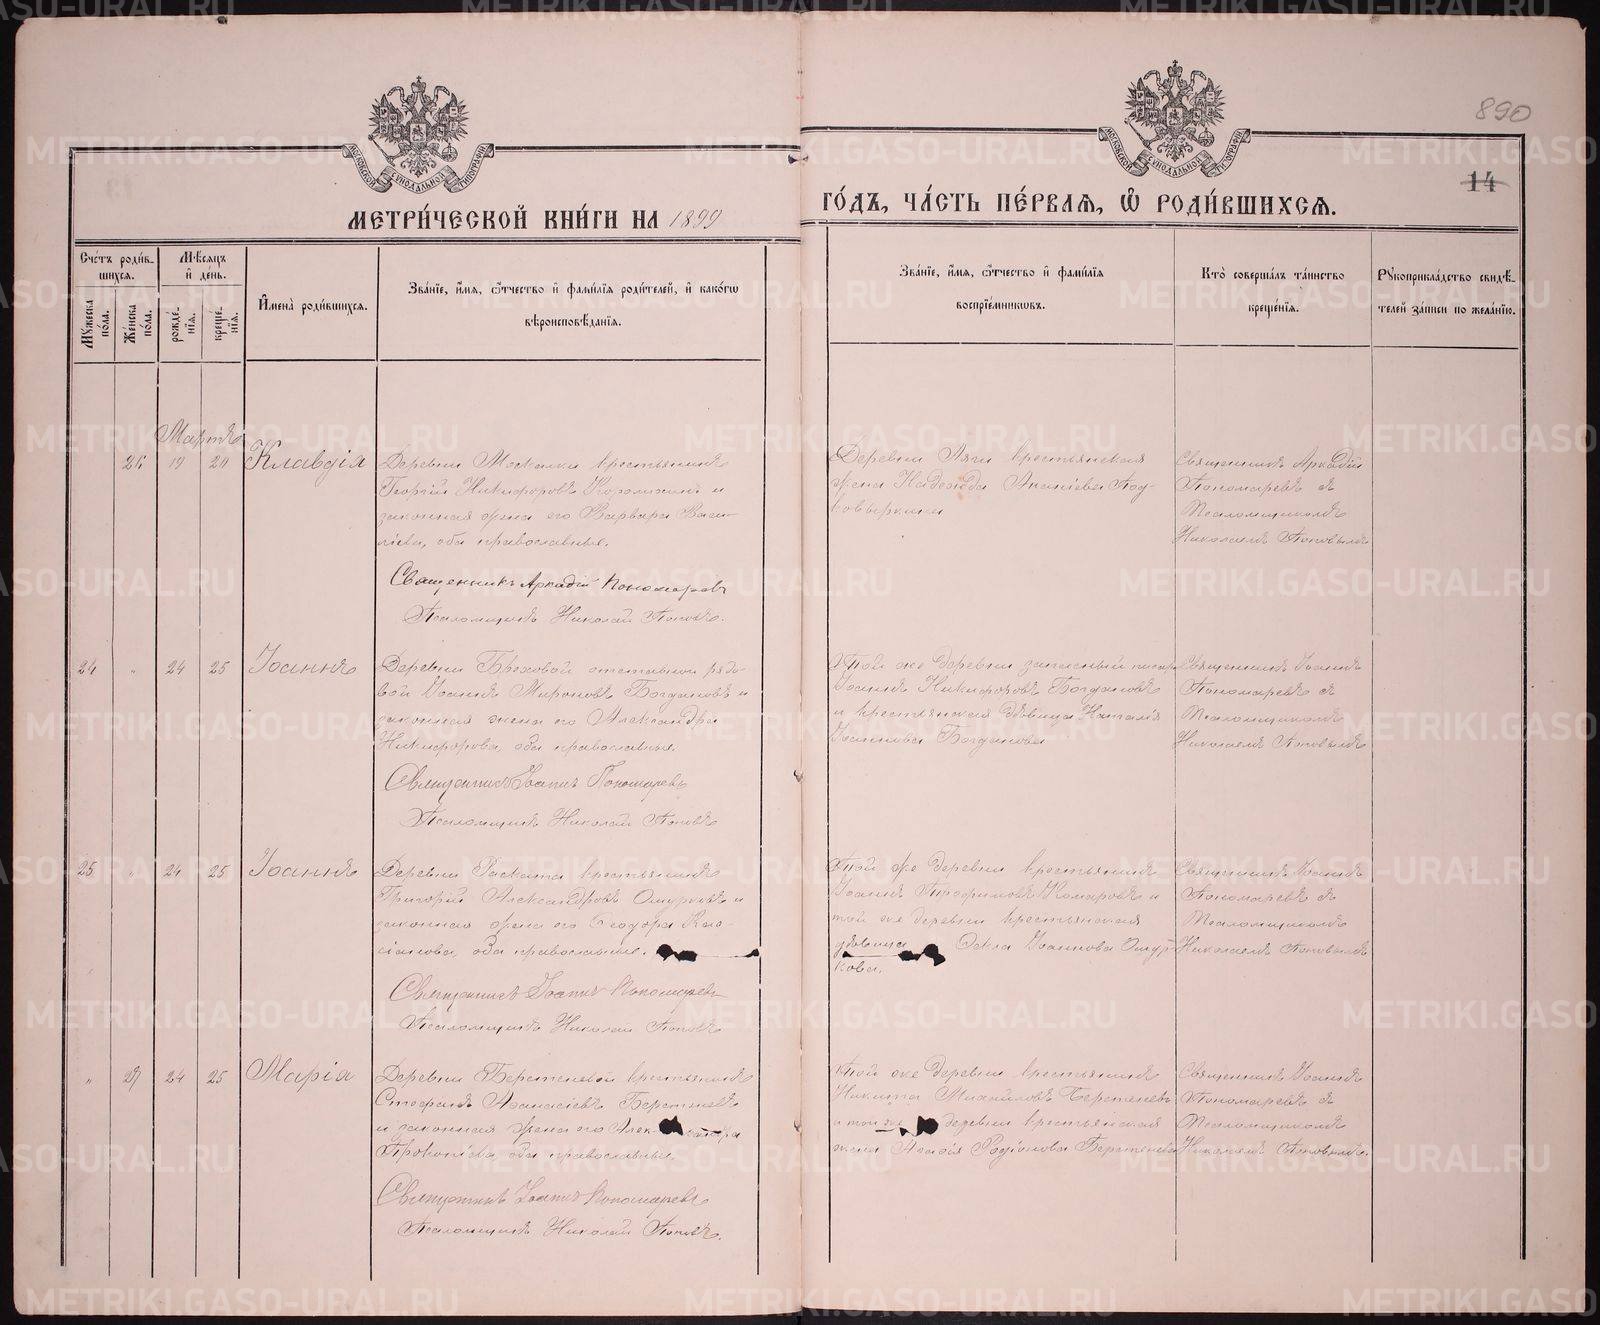 890
14
МЕТРИ́ЧЕСКОЙ КНИ́ГИ НА 1899
ГО́ДЪ, ЧА́СТЬ ПЕ́РВАЯ, Ѽ РОДИ́ВШИХСЯ.
Сче́тъ роди́в-
шихся.
Мѣ́сяцъ
и҆ де́нь.
Мꙋ́жеска по́ла.
Же́нска по́ла.
рожде́-
нїя.
креще́-
нїя.
И҆мена̀ роди́вшихся.
Зва́нїе, и҆́мя, ѻ҆́тчество и҆ фами́лїя роди́телей, и҆ како́гѡ
вѣроисповѣ́данїя.
Зва́нїе, и҆́мя, ѻ҆́тчество и҆ фами́лїя
воспрїе́мниковъ.
Кто̀ соверша́лъ та́инство
креще́нїя.
Рꙋкоприкла́дство свидѣ́-
телей за́писи по жела́нїю.
Марта
26 19 20 Клавдія
Деревни Москвиной крестьянинъ
Георгій Никифоровъ и
законная жена его Варвара Васи-
ліева, оба православные.
Священникъ Аркадій Пономаревъ
Псаломщикъ Николай Поповъ.
Деревни крестьянская
жена Надежда Ананіева
Священникъ Аркадій
Пономаревъ съ
Псаломщикомъ
Николаемъ Поповымъ
24 " 24 25 Іоаннъ
Деревни отставной рядо-
вой Іоаннъ Мироновъ Богдановъ и
законная жена его Александра
Никифорова, оба православные.
Священникъ Іоаннъ Пономаревъ
Псаломщикъ Николай Поповъ
Той же деревни запасный писарь
Іоаннъ Никифоровъ Богдановъ
и крестьянская дѣвица Наталія
Іоаннова Богданова
Священникъ Іоаннъ
Пономаревъ съ
Псаломщикомъ
Николаемъ Поповымъ
25 " 24 25 Іоаннъ
Деревни Раската крестьянинъ
Григорій Александровъ Ошурковъ и
законная жена его Ѳеодора Кас-
сіанова, оба православные.
Священникъ Іоаннъ Пономаревъ
Псаломщикъ Николай Поповъ
Той же деревни крестьянинъ
Іоаннъ Комаровъ и
той же деревни крестьянская
дѣвица Ѳекла Іоаннова Ошур-
кова.
Священникъ Іоаннъ
Пономаревъ съ
Псаломщикомъ
Николаемъ Поповымъ
" 27 24 25 Марія
Деревни Берстеневой крестьянинъ
Стефанъ Аѳанасіевъ Берстеневъ
и законная жена его Александра
Прокопіева, оба православные.
Священникъ Іоаннъ Пономаревъ
Псаломщикъ Николай Поповъ.
Той же деревни крестьянинъ
Никита Михайловъ Берстеневъ
и той же деревни крестьянская
жена Агаѳія Родіонова Берстенева
Священникъ Іоаннъ
Пономаревъ съ
Псаломщикомъ
Николаемъ Поповымъ.
METRIKI.GASO-URAL.RU